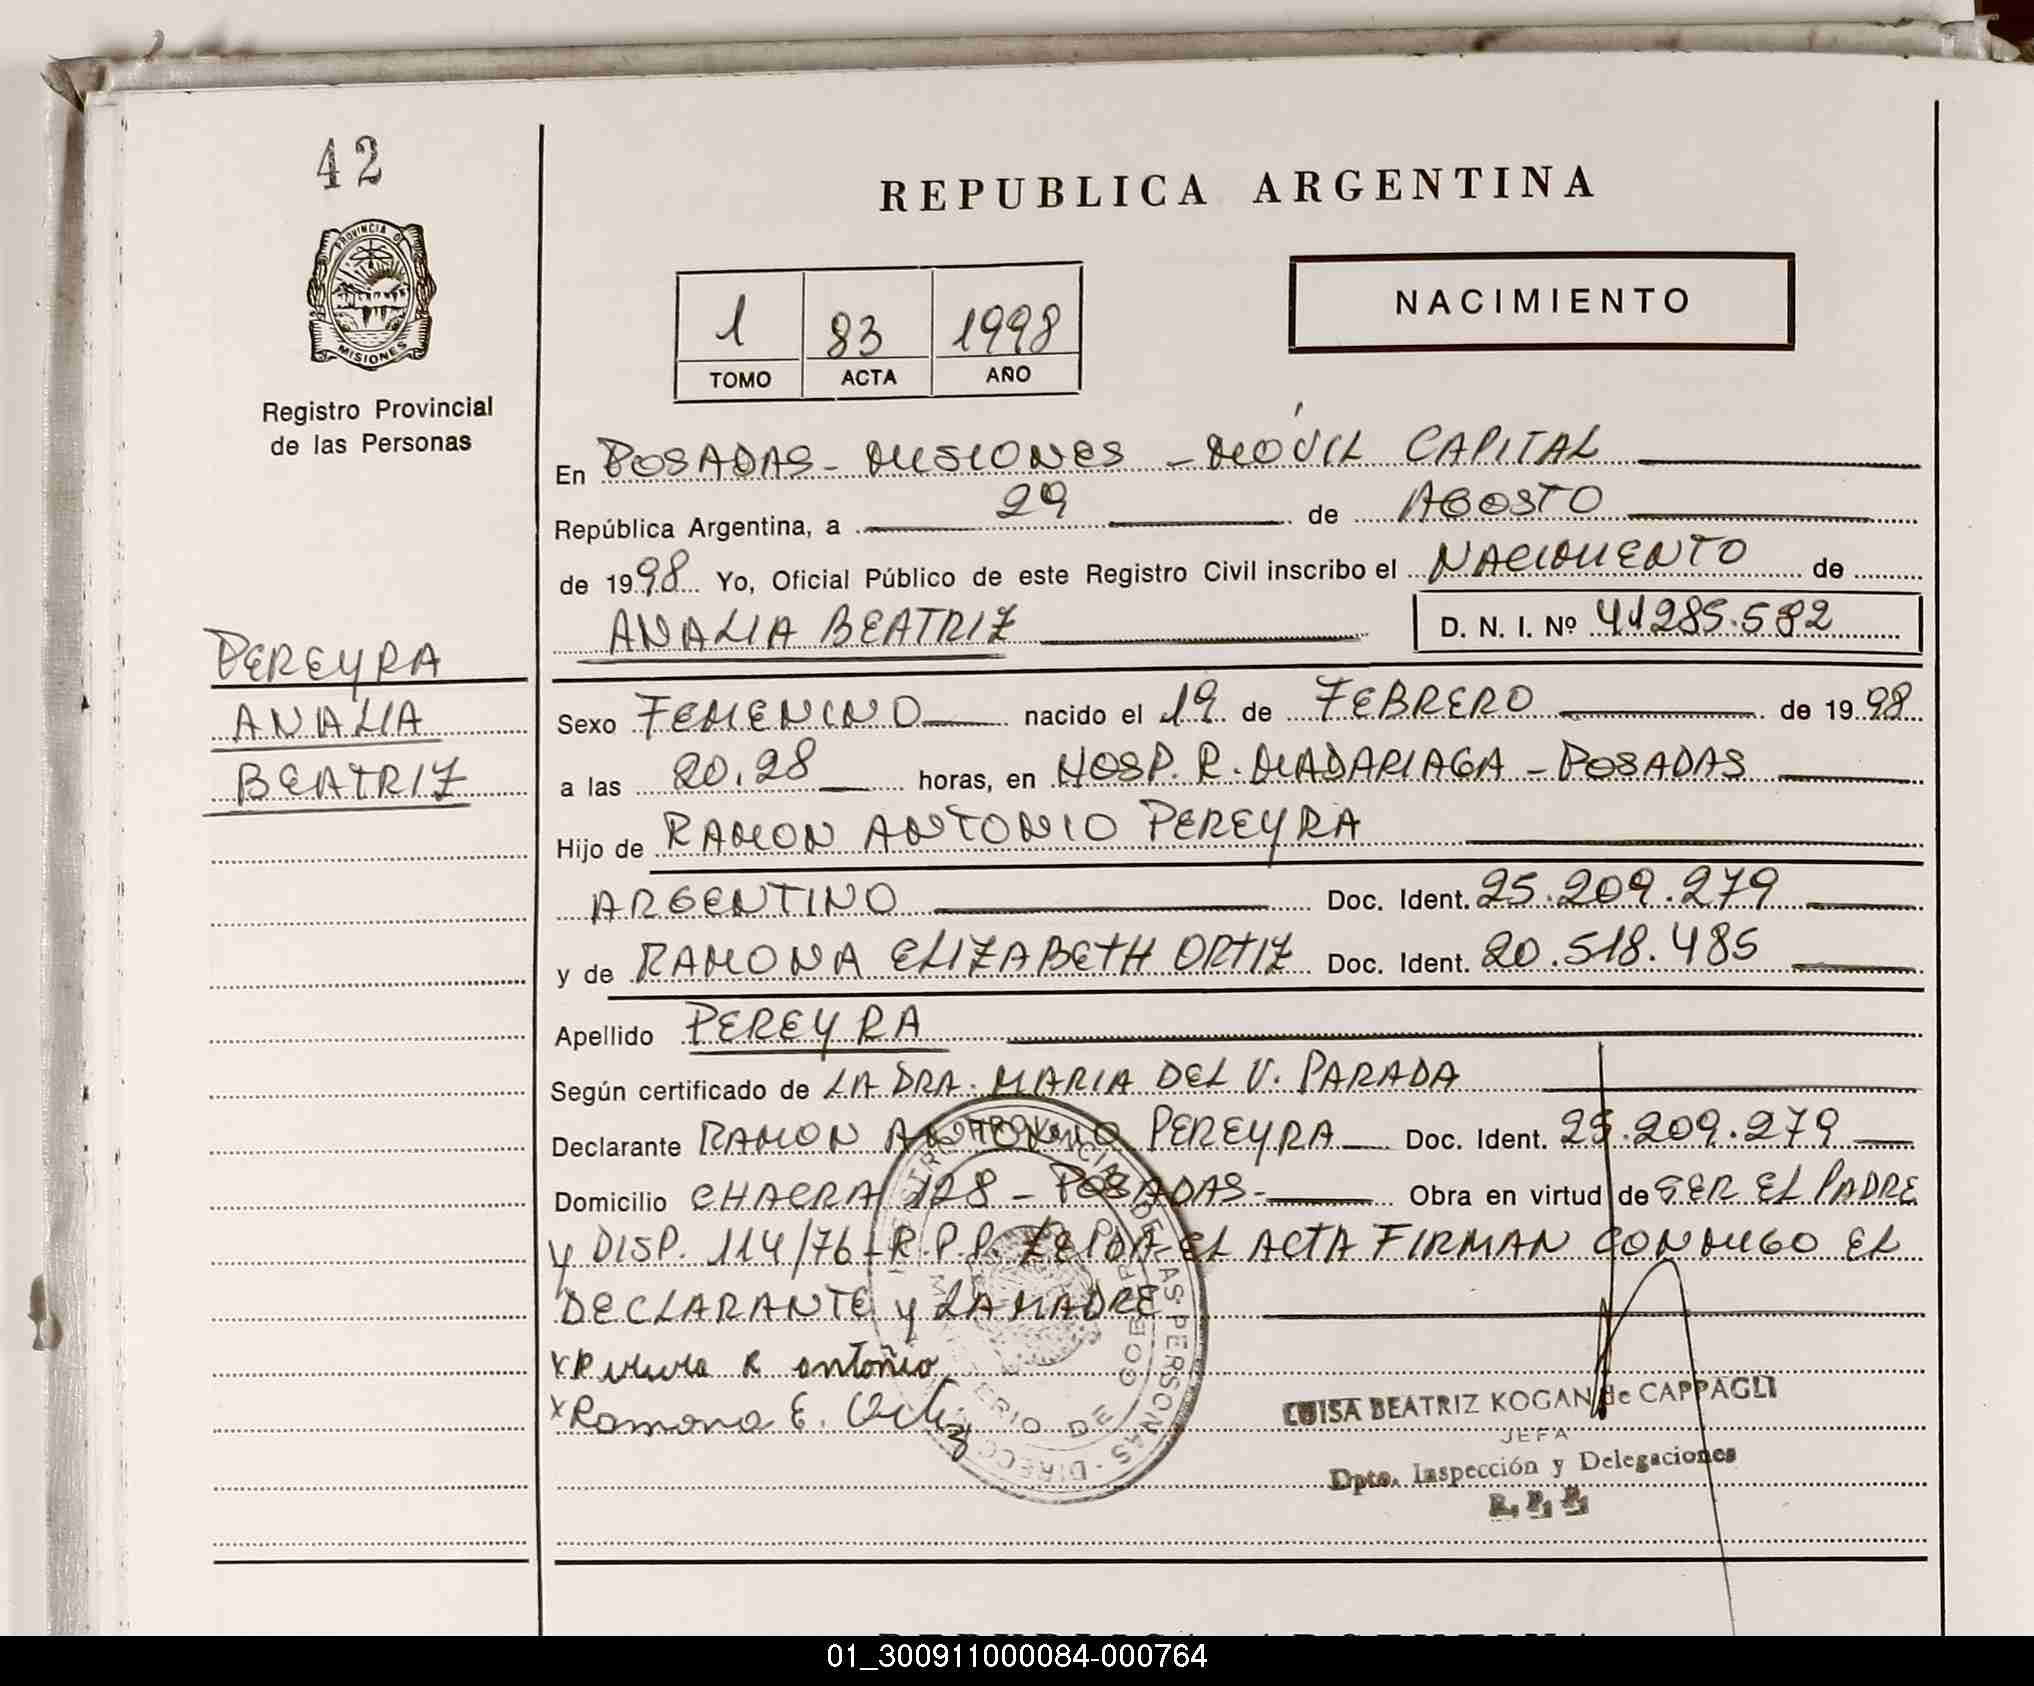 42
PROVINCIA DE
MISIONES
Registro Provincial
de las Personas
PEREYRA
ANALIA
BEATRIZ
REPUBLICA ARGENTINA
1 83 1998
TOMO ACTA AÑO
NACIMIENTO
En POSADAS - MISIONES - MÓVIL CAPITAL
República Argentina, a 29 de AGOSTO
de 1998 Yo, Oficial Público de este Registro Civil inscribo el NACIMIENTO de
ANALIA BEATRIZ D. N. I. Nº 41285.582
Sexo FEMENINO nacido el 19 de FEBRERO de 1998
a las 20.28 horas, en HOSP. R. MADARIAGA - POSADAS
Hijo de RAMON ANTONIO PEREYRA
ARGENTINO Doc. Ident. 25.209.279
y de RAMONA ELIZABETH ORTIZ Doc. Ident. 20.518.485
Apellido PEREYRA
Según certificado de LA DRA. MARIA DEL V. PARADA
Declarante RAMON ANTONIO PEREYRA Doc. Ident. 25.209.279
Domicilio CHACRA 128 - POSADAS- Obra en virtud de SER EL PADRE
y DISP. 114/76-R.P.P. LEIDA EL ACTA FIRMAN CONMIGO EL
DECLARANTE y LA MADRE
x R antonio
x Ramona E. Ortiz
LUISA BEATRIZ KOGAN de CAPPAGLI
JEFA
Dpto. Inspección y Delegaciones
R. P. P.
REPUBLICA ARGENTINA
01_300911000084-000764